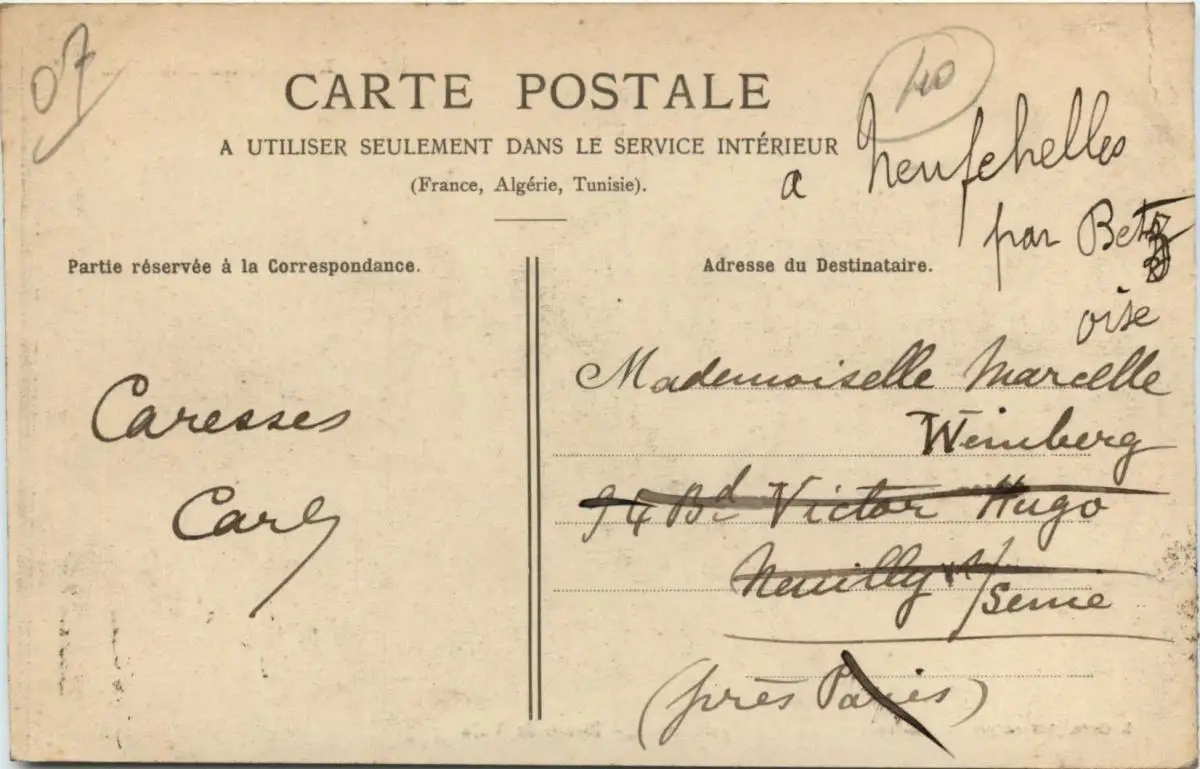 07
40
CARTE POSTALE
A UTILISER SEULEMENT DANS LE SERVICE INTÉRIEUR
(France, Algérie, Tunisie).
a Neufchelles
par Betz
oise
Partie réservée à la Correspondance.
Adresse du Destinataire.
Caresses
Carl
Mademoiselle Marcelle
Weinberg
94 Bd Victor Hugo
Neuilly s/
Seine
(près Paris)